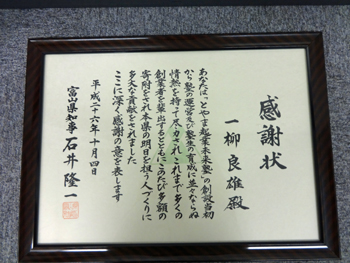 感謝状
一柳良雄殿
あなたは“とやま起業未来塾”の創設当初
から塾の運営及び塾生の育成に並々ならぬ
情熱を持って尽力されこれまで多くの
創業者を輩出するとともにこのたび多額の
寄附をされ本県の明日を担う人づくりに
多大な貢献をされました
ここに深く感謝の意を表します
平成二十六年十月四日
富山県知事 石井隆一